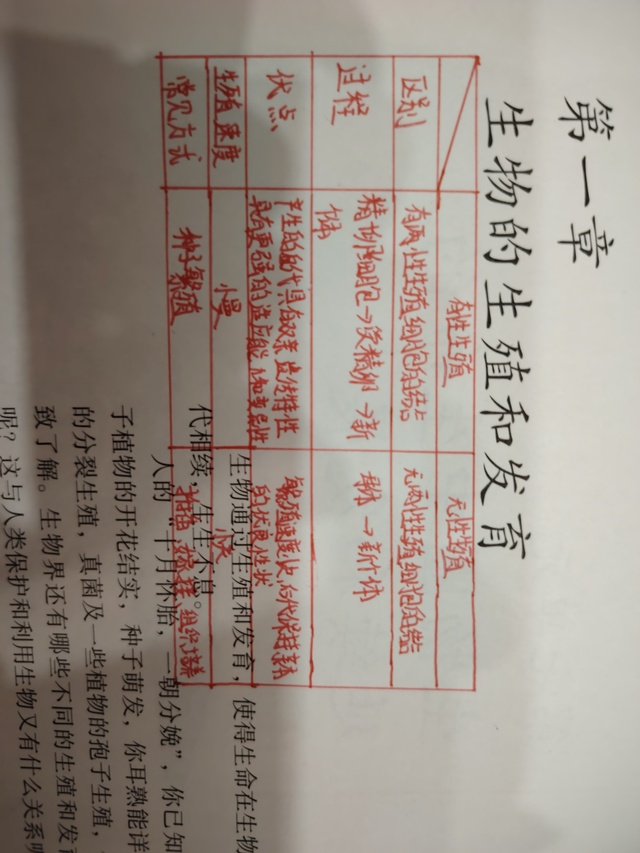 第一章
生物的生殖和发育
有性生殖 无性生殖
区别 有两性生殖细胞的结合 无两性生殖细胞的结合
过程 精、卵细胞→受精卵→新个体 母体→新个体
优点 产生的后代具有双亲遗传特性 繁殖速度快,后代保持亲本
具有更强的 的优良性状
生殖速度 慢 快
常见方式 种子繁殖 扦插 嫁接 组织培养
生物通过生殖和发育,使得生命在生物
代相续,生生不息。
人的“十月怀胎,一朝分娩”,你已知
子植物的开花结实,种子萌发,你耳熟能详
的分裂生殖,真菌及一些植物的孢子生殖,
致了解。生物界还有哪些不同的生殖和发育
呢?这与人类保护和利用生物又有什么关系呢